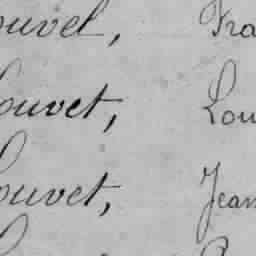 ouvet, Fra
ouvet, Lou
ouvet, Jean